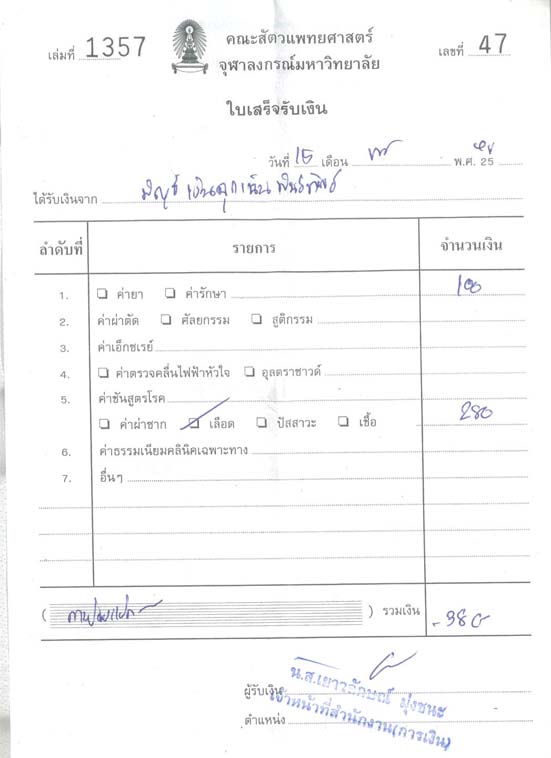 เล่มที่ 1357
คณะสัตวแพทยศาสตร์
จุฬาลงกรณ์มหาวิทยาลัย
เลขที่ 47
ใบเสร็จรับเงิน
วันที่ 15 เดือน พ.ศ. 25
ได้รับเงินจาก
ลำดับที่ รายการ จำนวนเงิน
1. ค่ายา ค่ารักษา 100
2. ค่าผ่าตัด ศัลยกรรม สูติกรรม
3. ค่าเอ็กซเรย์
4. ค่าตรวจคลื่นไฟฟ้าหัวใจ อุลตราซาวด์
5. ค่าชันสูตรโรค
ค่าผ่าซาก เลือด ปัสสาวะ เชื้อ 280
6. ค่าธรรมเนียมคลินิคเฉพาะทาง
7. อื่นๆ
( ) รวมเงิน -380
ผู้รับเงิน น.ส.เยาวลักษณ์ มุ่งชนะ
ตำแหน่ง เจ้าหน้าที่สำนักงาน(การเงิน)